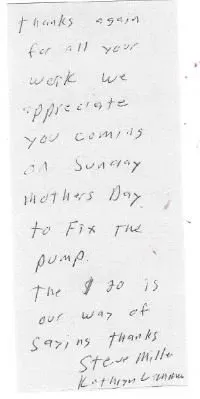 thanks again
for all your
work we
appreciate
you coming
on Sunday
mothers Day
to Fix the
pump.
The $20 is
our way of
saying thanks
Steve Miller
Kathryn